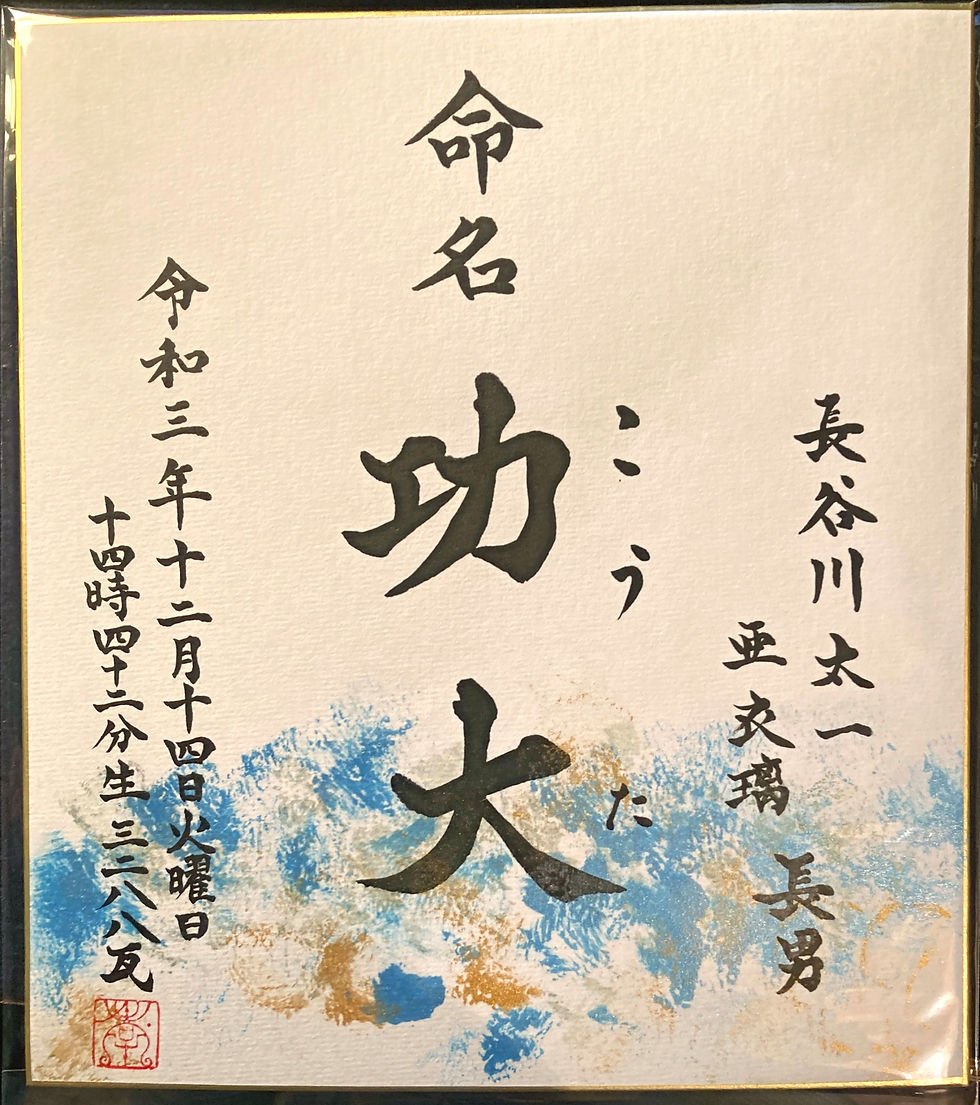 長谷川太一
亜衣璃
長男
命名 功大
こうた
令和三年十二月十四日火曜日
十四時四十二分生 三二八八瓦